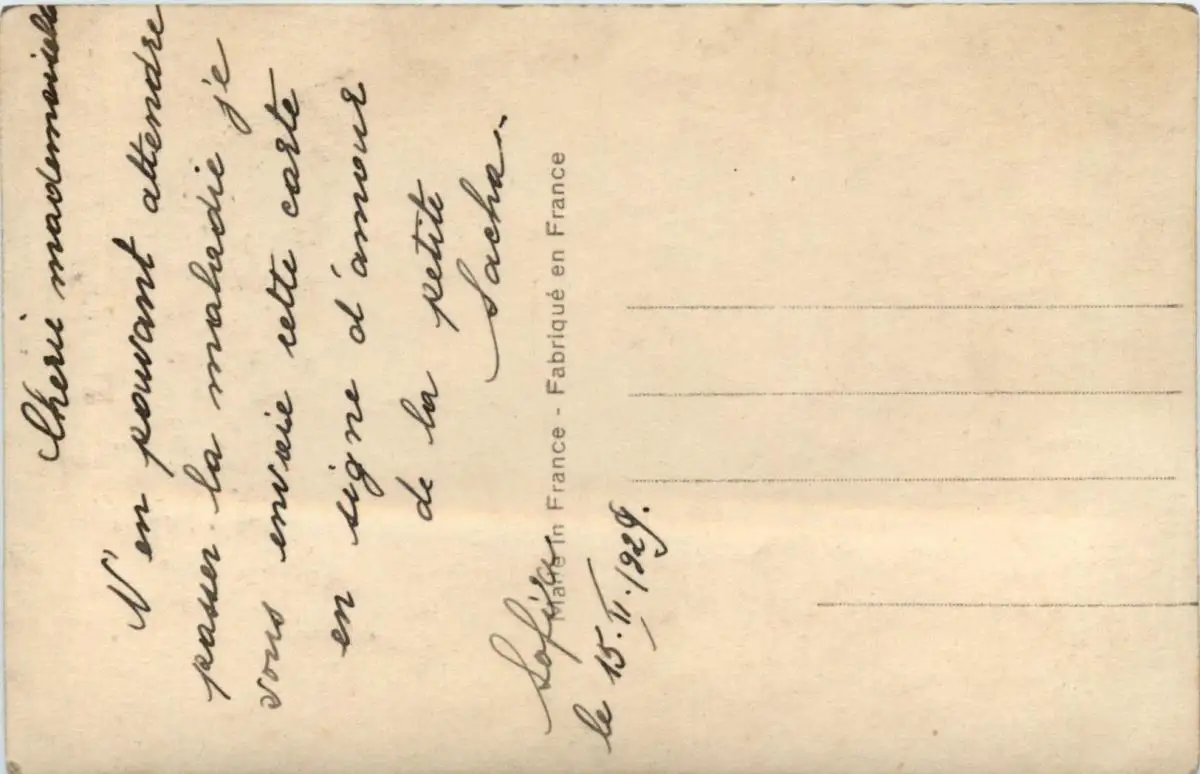 Chérie mademoiselle
N'en pouvant attendre
passer la maladie je
vous envoie cette carte
en signe d'amour
de la petite
Sacha.
Made in France - Fabriqué en France
Sofia
le 15.II.1929.